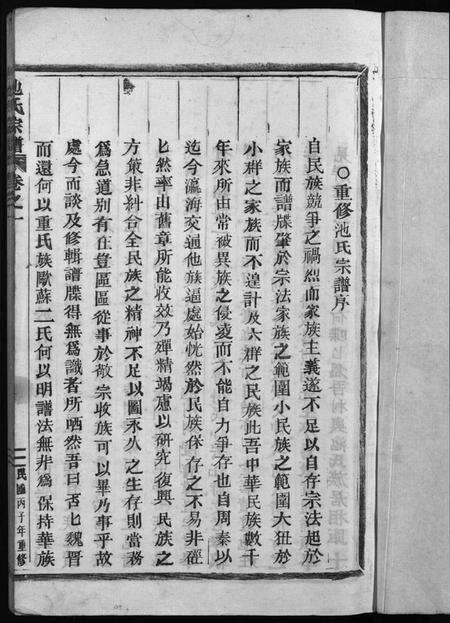 ○重修池氏宗譜序
自民族競爭之禍烈而家族主義遂不足以自存宗法起於
家族而譜牒肇於宗法家族之範圍小民族之範圍大狃於
小群之家族而不遑計及大群之民族此吾中華民族數千
年來所由常被異族之侵凌而不能自力爭存也自周秦以
迄今瀛海交通他族逼處始恍然於民族保存之不易非硜
硜然率由舊章所能收效乃殫精竭慮以研究復興民族之
方策非糾合全民族之精神不足以圖永久之生存則當務
爲急道別有在豈區區從事於敬宗收族可以畢乃事乎故
處今而談及修輯譜牒得無爲識者所哂然吾曰否匕魏晋
而還何以重氏族歐蘇二氏何以明譜法無非爲保持華族
池氏宗譜 卷之一
民國丙子年重修